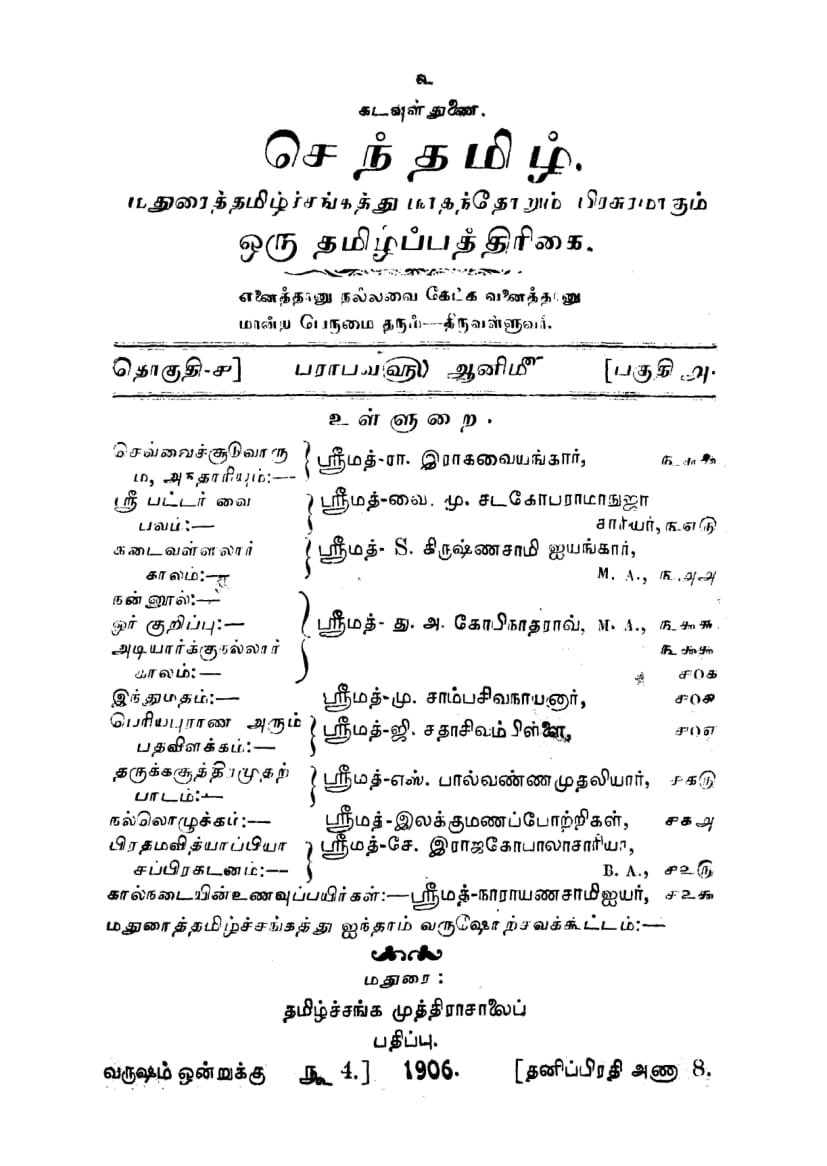 உ
கடவுள் துணை.
செந்தமிழ்.
மதுரைத்தமிழ்ச்சங்கத்து மாதந்தோறும் பிரசுரமாகும்
ஒரு தமிழ்ப்பத்திரிகை.
எனைத்தானு நல்லவை கேட்க வனைத்தானு
மான்ற பெருமை தரும்—திருவள்ளுவர்.
தொகுதி-௪] பராபவ௵ ஆனி௴ [பகுதி ௮.
உள்ளுறை.
செவ்வைச்சூடுவாரு
ம், அரதாரியும்:— ஸ்ரீமத்-ரா. இராகவையங்கார்,
ஸ்ரீ பட்டர் வை ஸ்ரீமத்-வை. மு. சடகோபராமாநுஜா
பவம்:— சார்யர், ௩௭௫
கடைவள்ளலார் ஸ்ரீமத்- S. கிருஷ்ணசாமி ஐயங்கார்,
காலம்:— M. A., ௩௮௮
நன்னூல்:—
ஓர் குறிப்பு:— ஸ்ரீமத்- து. அ. கோபிநாதராவ், M. A., ௩௯௩
அடியார்க்குநல்லார் ௩௯௯
காலம்:— ௪0௧
இந்துமதம்:— ஸ்ரீமத்-மு. சாம்பசிவநாயனார், ௪0௪
பெரியபுராண அரும் ஸ்ரீமத்-ஜி. சதாசிவம்பிள்ளை, ௪0௭
பதவிளக்கம்:—
தருக்கசூத்திரமுதற் ஸ்ரீமத்-எஸ். பால்வண்ணமுதலியார், ௪௧௫
பாடம்:—
நல்லொழுக்கம்:— ஸ்ரீமத்-இலக்குமணப்போற்றிகள், ௪௧௮
பிரதமவித்யாப்பியா ஸ்ரீமத்-சே. இராஜகோபாலாசாரியா,
சப்பிரகடனம்:— B. A., ௪௨௫
கால்நடையின்உணவுப்பயிர்கள்:—ஸ்ரீமத்-நாராயணசாமிஐயர், ௪௨௯
மதுரைத்தமிழ்ச்சங்கத்து ஐந்தாம் வருஷோற்சவக்கூட்டம்:—
மதுரை :
தமிழ்ச்சங்க முத்திராசாலைப்
பதிப்பு.
வருஷம் ஒன்றுக்கு ரூ 4.] 1906. [தனிப்பிரதி அணா 8.